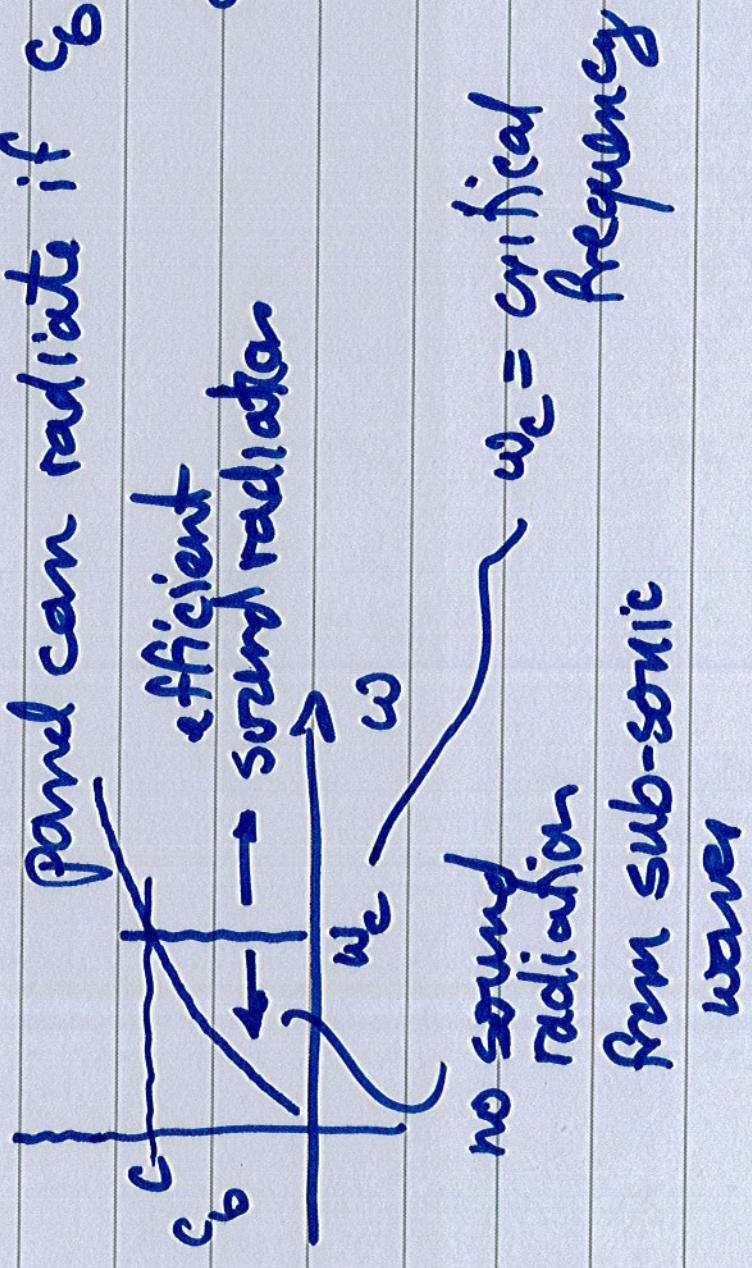 panel can radiate if c_b
efficient
sound radiation
c
c_b
ω_c
ω
no sound
radiation
from sub-sonic
waves
ω_c = critical
frequency